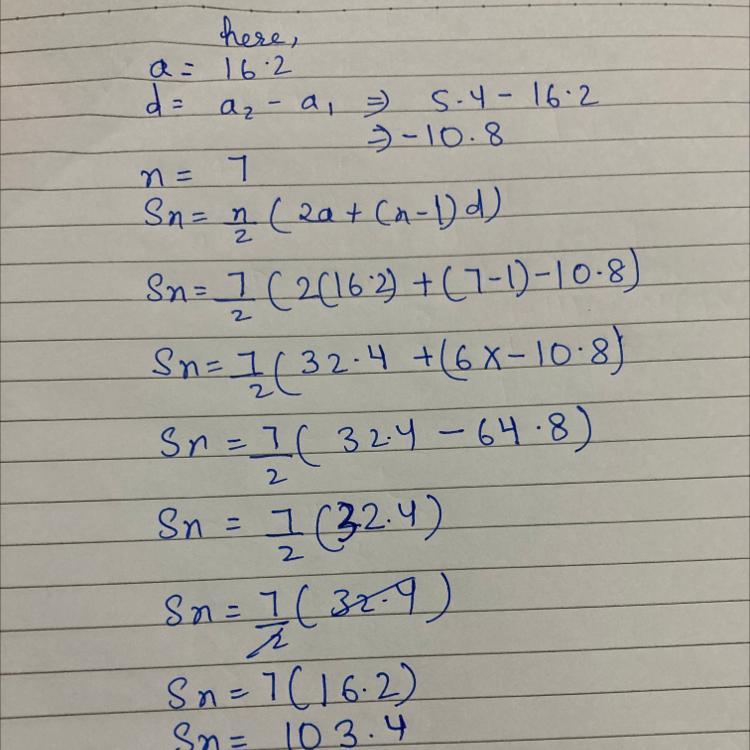 here,
a = 16.2
d = a₂ - a₁ ⇒ 5.4 - 16.2
⇒ -10.8
n = 7
Sn = n/2 (2a + (n-1)d)
Sn = 7/2 (2(16.2) + (7-1) -10.8)
Sn = 7/2 (32.4 + (6x -10.8)
Sn = 7/2 (32.4 - 64.8)
Sn = 7/2 (32.4)
Sn = 7/2 (32.4)
Sn = 7(16.2)
Sn = 103.4